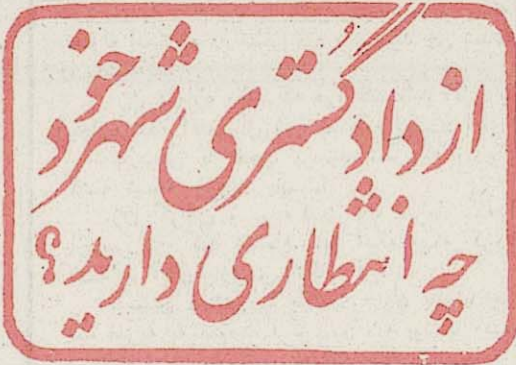 از دادگستری شهر خود
چه انتظاری دارید؟